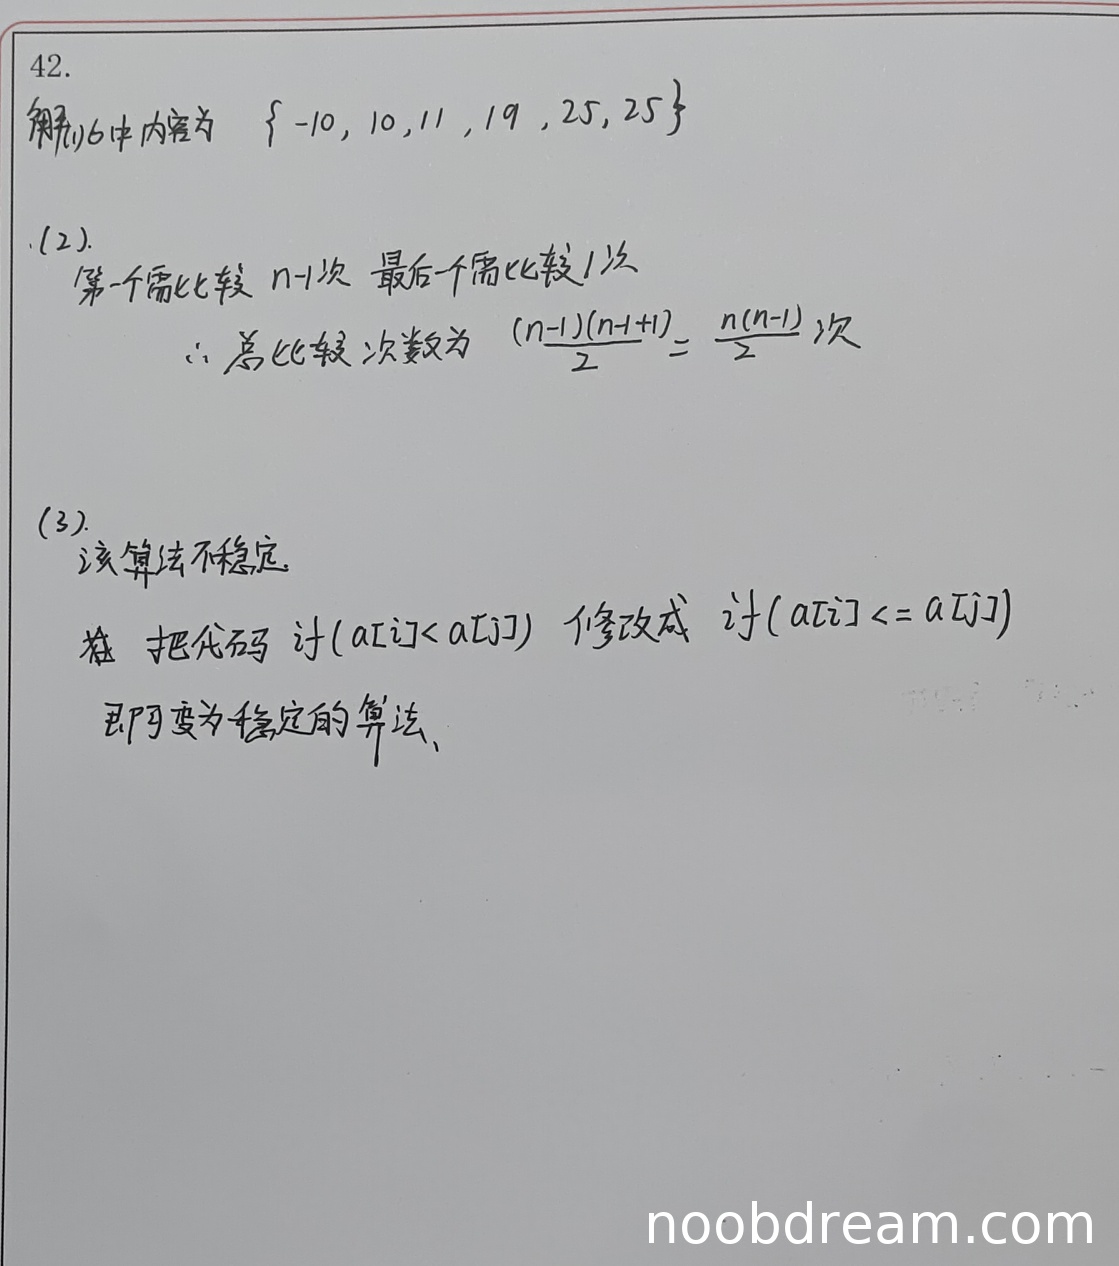 42.
解(1)b中内容为 {-10, 10, 11, 19, 25, 25}
(2).
第一个需比较 n-1次 最后一个需比较1次
∴ 总比较次数为 (n-1)(n-1+1)/2 = n(n-1)/2 次
(3).
该算法不稳定.
把代码 if(a[i]<a[j]) 修改成 if(a[i]<=a[j])
即可变为稳定的算法、
noobdream.com